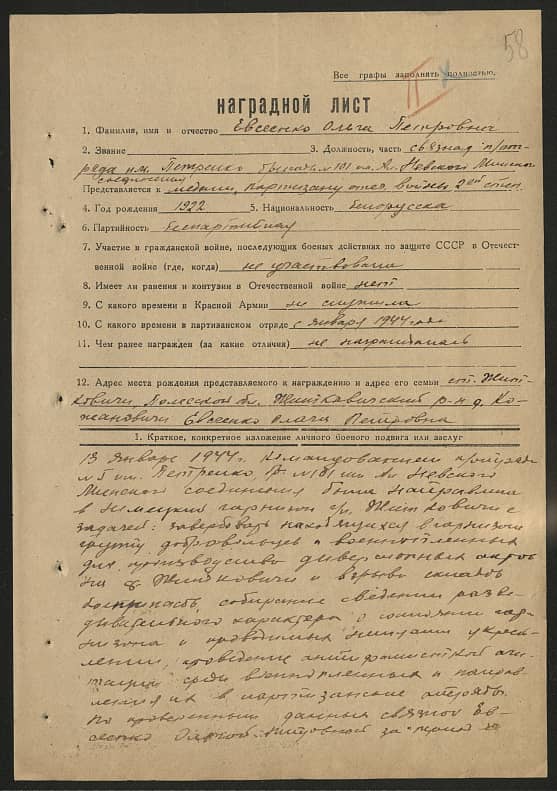 58
Все графы заполнять полностью.
наградной лист
1. Фамилия, имя и отчество Евсеенко Ольга Петровна
2. Звание 3. Должность, часть связная п/от-
ряда им. Петренко бригады №101 им. Ал. Невского Минского
соединения
Представляется к медали „Партизану отеч. войны" 2ой степ.
4. Год рождения 1922 5. Национальность белорусска
6. Партийность беспартийная
7. Участие в гражданской войне, последующих боевых действиях по защите СССР в Отечест-
венной войне (где, когда) не участвовала
8. Имеет ли ранения и контузии в Отечественной войне нет
9. С какого времени в Красной Армии не служила
10. С какого времени в партизанском отряде с января 1944 года
11. Чем ранее награжден (за какие отличия) не награждалась
12. Адрес места рождения представляемого к награждению и адрес его семьи ст. Жит-
ковичи Полесской обл. Житковичский р-н д. Ко-
жановичи Евсеенко Ольги Петровна
1. Краткое, конкретное изложение личного боевого подвига или заслуг
13 января 1944 г. командованием п/отряда
№5 им. Петренко, №101 им Ал Невского
Минского соединения была направлена
в немецкий гарнизон Житковичи с
задачей: завербовать находящихся в гарнизоне
группу добровольцев и военнопленных
для производства диверсионных актов
на Житковичи и взрыва складов
боеприпасов, собирание сведений разве-
дывательного характера о состоянии гар-
низона и проводимых немцами укреп-
лений, проведение антифашистской аги-
тации среди военнопленных и направ-
ления их в партизанские отряды.
По проверенным данным связной Ев-
сеенко Ольгой Петровной за период